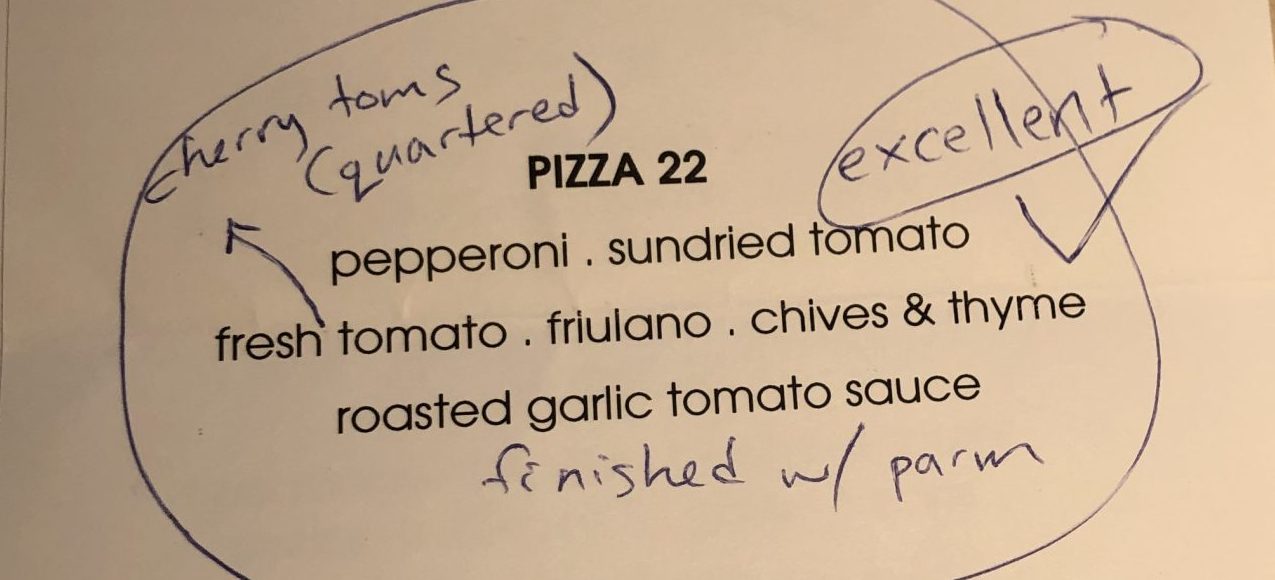 cherry toms
(quartered)
excellent
PIZZA 22
pepperoni . sundried tomato
fresh tomato . friulano . chives & thyme
roasted garlic tomato sauce
finished w/ parm